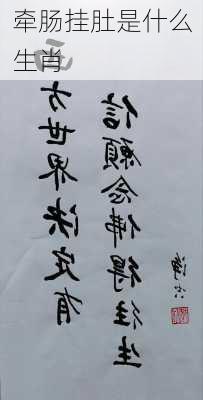 牵肠挂肚是什么
生肖
西方世界决定有
信願念佛得往生
净空